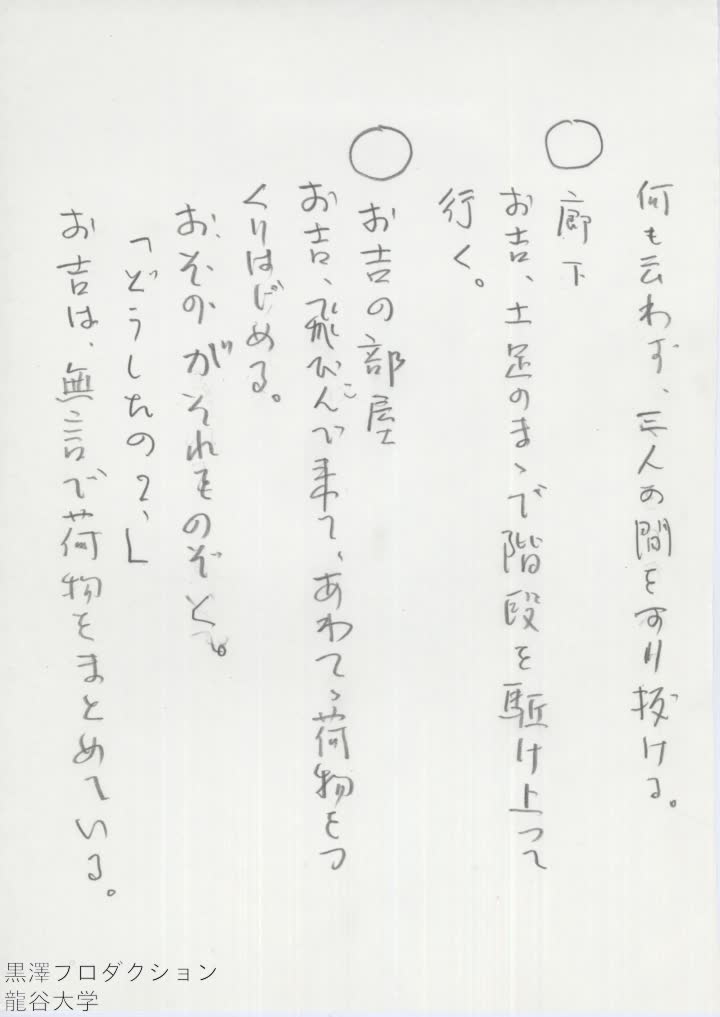 何も云わず、三人の間をすり抜ける。
○ 廊下
お吉、土足のまゝで階段を駈け上って
行く。
○ お吉の部屋
お吉、飛びこんで来て、あわてゝ荷物をつ
くりはじめる。
おそのがそれをのぞく。
「どうしたの?」
お吉は、無言で荷物をまとめている。
黒澤プロダクション
龍谷大学